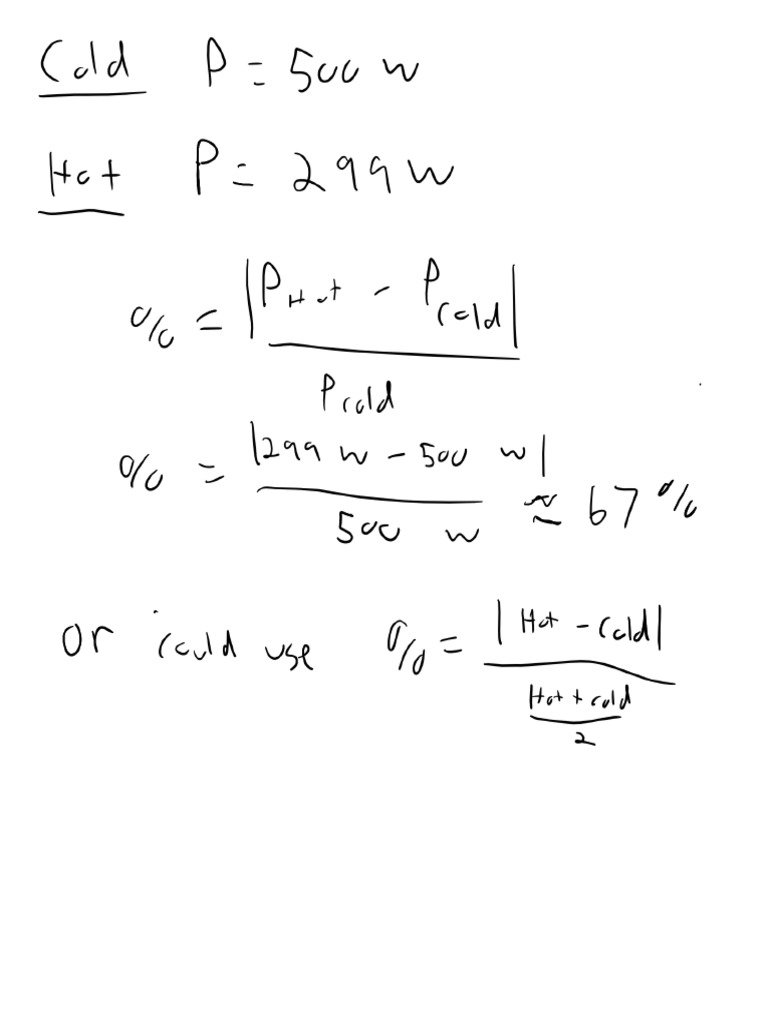 Cold P = 500 W
Hot P = 299 W
% = |P Hot - P Cold|
P cold
% = |299 W - 500 W|
500 W ≈ 67 %
or could use % = |Hot - Cold|
Hot + cold
2